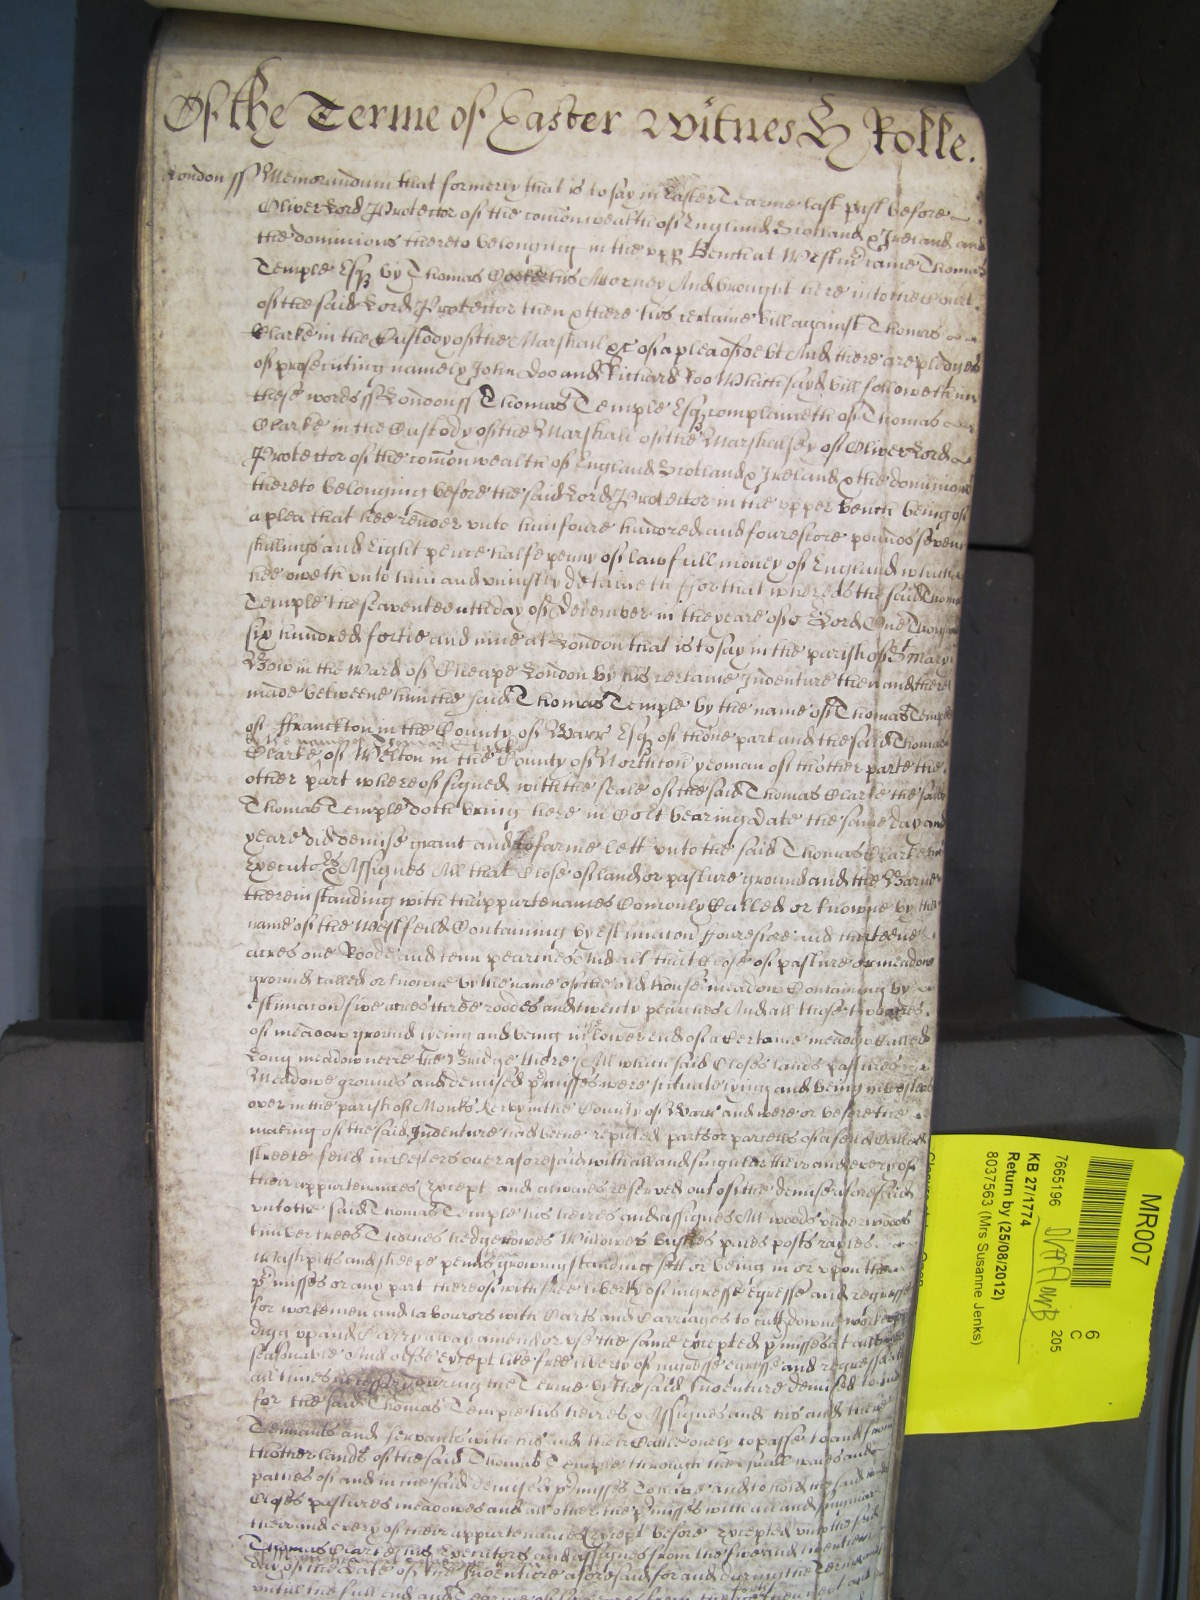 Of the Terme of Easter Witnes H Rolle.
London ss Memorandum that formerly that is to say in Easter Tearme last past before
Oliver Lord Protector of the comonwealth of England Scotland & Ireland and
the dominions thereto belonging in the upp Bench at Westm came Thomas
Temple Esq by Thomas his Attorney And brought here into the Court
of the said Lord Protector then & there his certaine bill against Thomas
Clarke in the Custody of the Marshall &c of a plea of debt And there are pledges
of prosecuting namely John Doo and Richard Roo Which said bill followeth in
these words ss London ss Thomas Temple Esq complaineth of Thomas
Clarke in the Custody of the Marshall of the Marshalsey of Oliver Lord
Protector of the comonwealth of England Scotland & Ireland & the dominions
thereto belonging before the said Lord Protector in the upper bench being of
a plea that hee render unto him foure hundred and fourescore pounds seven
shillings and Eight pence halfe penny of lawfull money of England which
hee oweth unto him and uniustly detaineth ffor that whereas the said Thomas
Temple the seaventeenth day of December in the yeare of o Lord One Thousand
six hundred fortie and nine at London that is to say in the parish of S Mary
Bow in the Ward of Cheape London by his certaine Indenture then and there
made betweene him the said Thomas Temple by the name of Thomas Temple
of ffranckton in the County of Warr Esq of thone part and the said Thomas
by the name of Thomas Clarke
Clarke of Welton in the County of Northton yeoman of thother parte the
other part whereof signed with the seale of the said Thomas Clarke the said
Thomas Temple doth bring here in Co't bearing date the same day and
yeare did demise grant and to farme lett unto the said Thomas Clarke his
Executo's & Assignes All that Close of land or pasture ground and the Barne
therein standing with thappurtenances Comonly Called or knowne by the
name of the West feild Containing by estimacon ffourescore and thirteene
acres one Roode and tenn pearches And all that Close of pasture or meadow
ground called or knowne by the name of the old house meadow Containing by
estimacon five acres three roodes and twenty pearches And all those two acres
of meadow ground lying and being in lower end of a certaine meadow Called
Long meadow neere the Bridge there All which said Closes lands pastures
Meadowe grounds and demised p'misses were situate lying and being in
over in the parish of Monks Kirby in the County of Warr and were or before the
making of the said Indenture had beene reputed parts or parcells of a feild Called
streete feild in aforesaid with all and singuler their and every of
their appurtenances Except and alwaies reserved out of the demise aforesaid
unto the said Thomas Temple his heires and assignes All woods underwoods
timber trees Thornes hedgerowes Willowes bushes pales posts rayles
Washpitts and sheepe penns growing standing sett or being in or upon the
p'misses or any part thereof with free liberty of ingresse egresse and regresse
for workemen and labourors with Carts and Carriages to cutt downe
digg up and Carry away amend or use the same excepted p'misses at
seasonable And alsoe except like free liberty of ingresse egresse and regresse
at times necessary during the Terme by the said Indenture demised to and
for the said Thomas Temple his heires & Assignes and his and their
Tennants and servants with his and their Cattle onely to passe to and from
thother lands of the said Thomas Temple through the usuall waies and
passages of and in the said demised p'misses To have and to hold the said
Closes pastures meadowes and all other the p'misses with all and singuler
their and every of their appurtenances Except before excepted unto the said
Thomas Clarke his executors and assignes from the five and twentieth
day of the date of the Indenture aforesaid for and during the Terme
untill the full end and Tearme of from the then next
MR007
6
C
205
7665196
KB 27/1774
Return by (25/08/2012)
8037563 (Mrs Susanne Jenks)